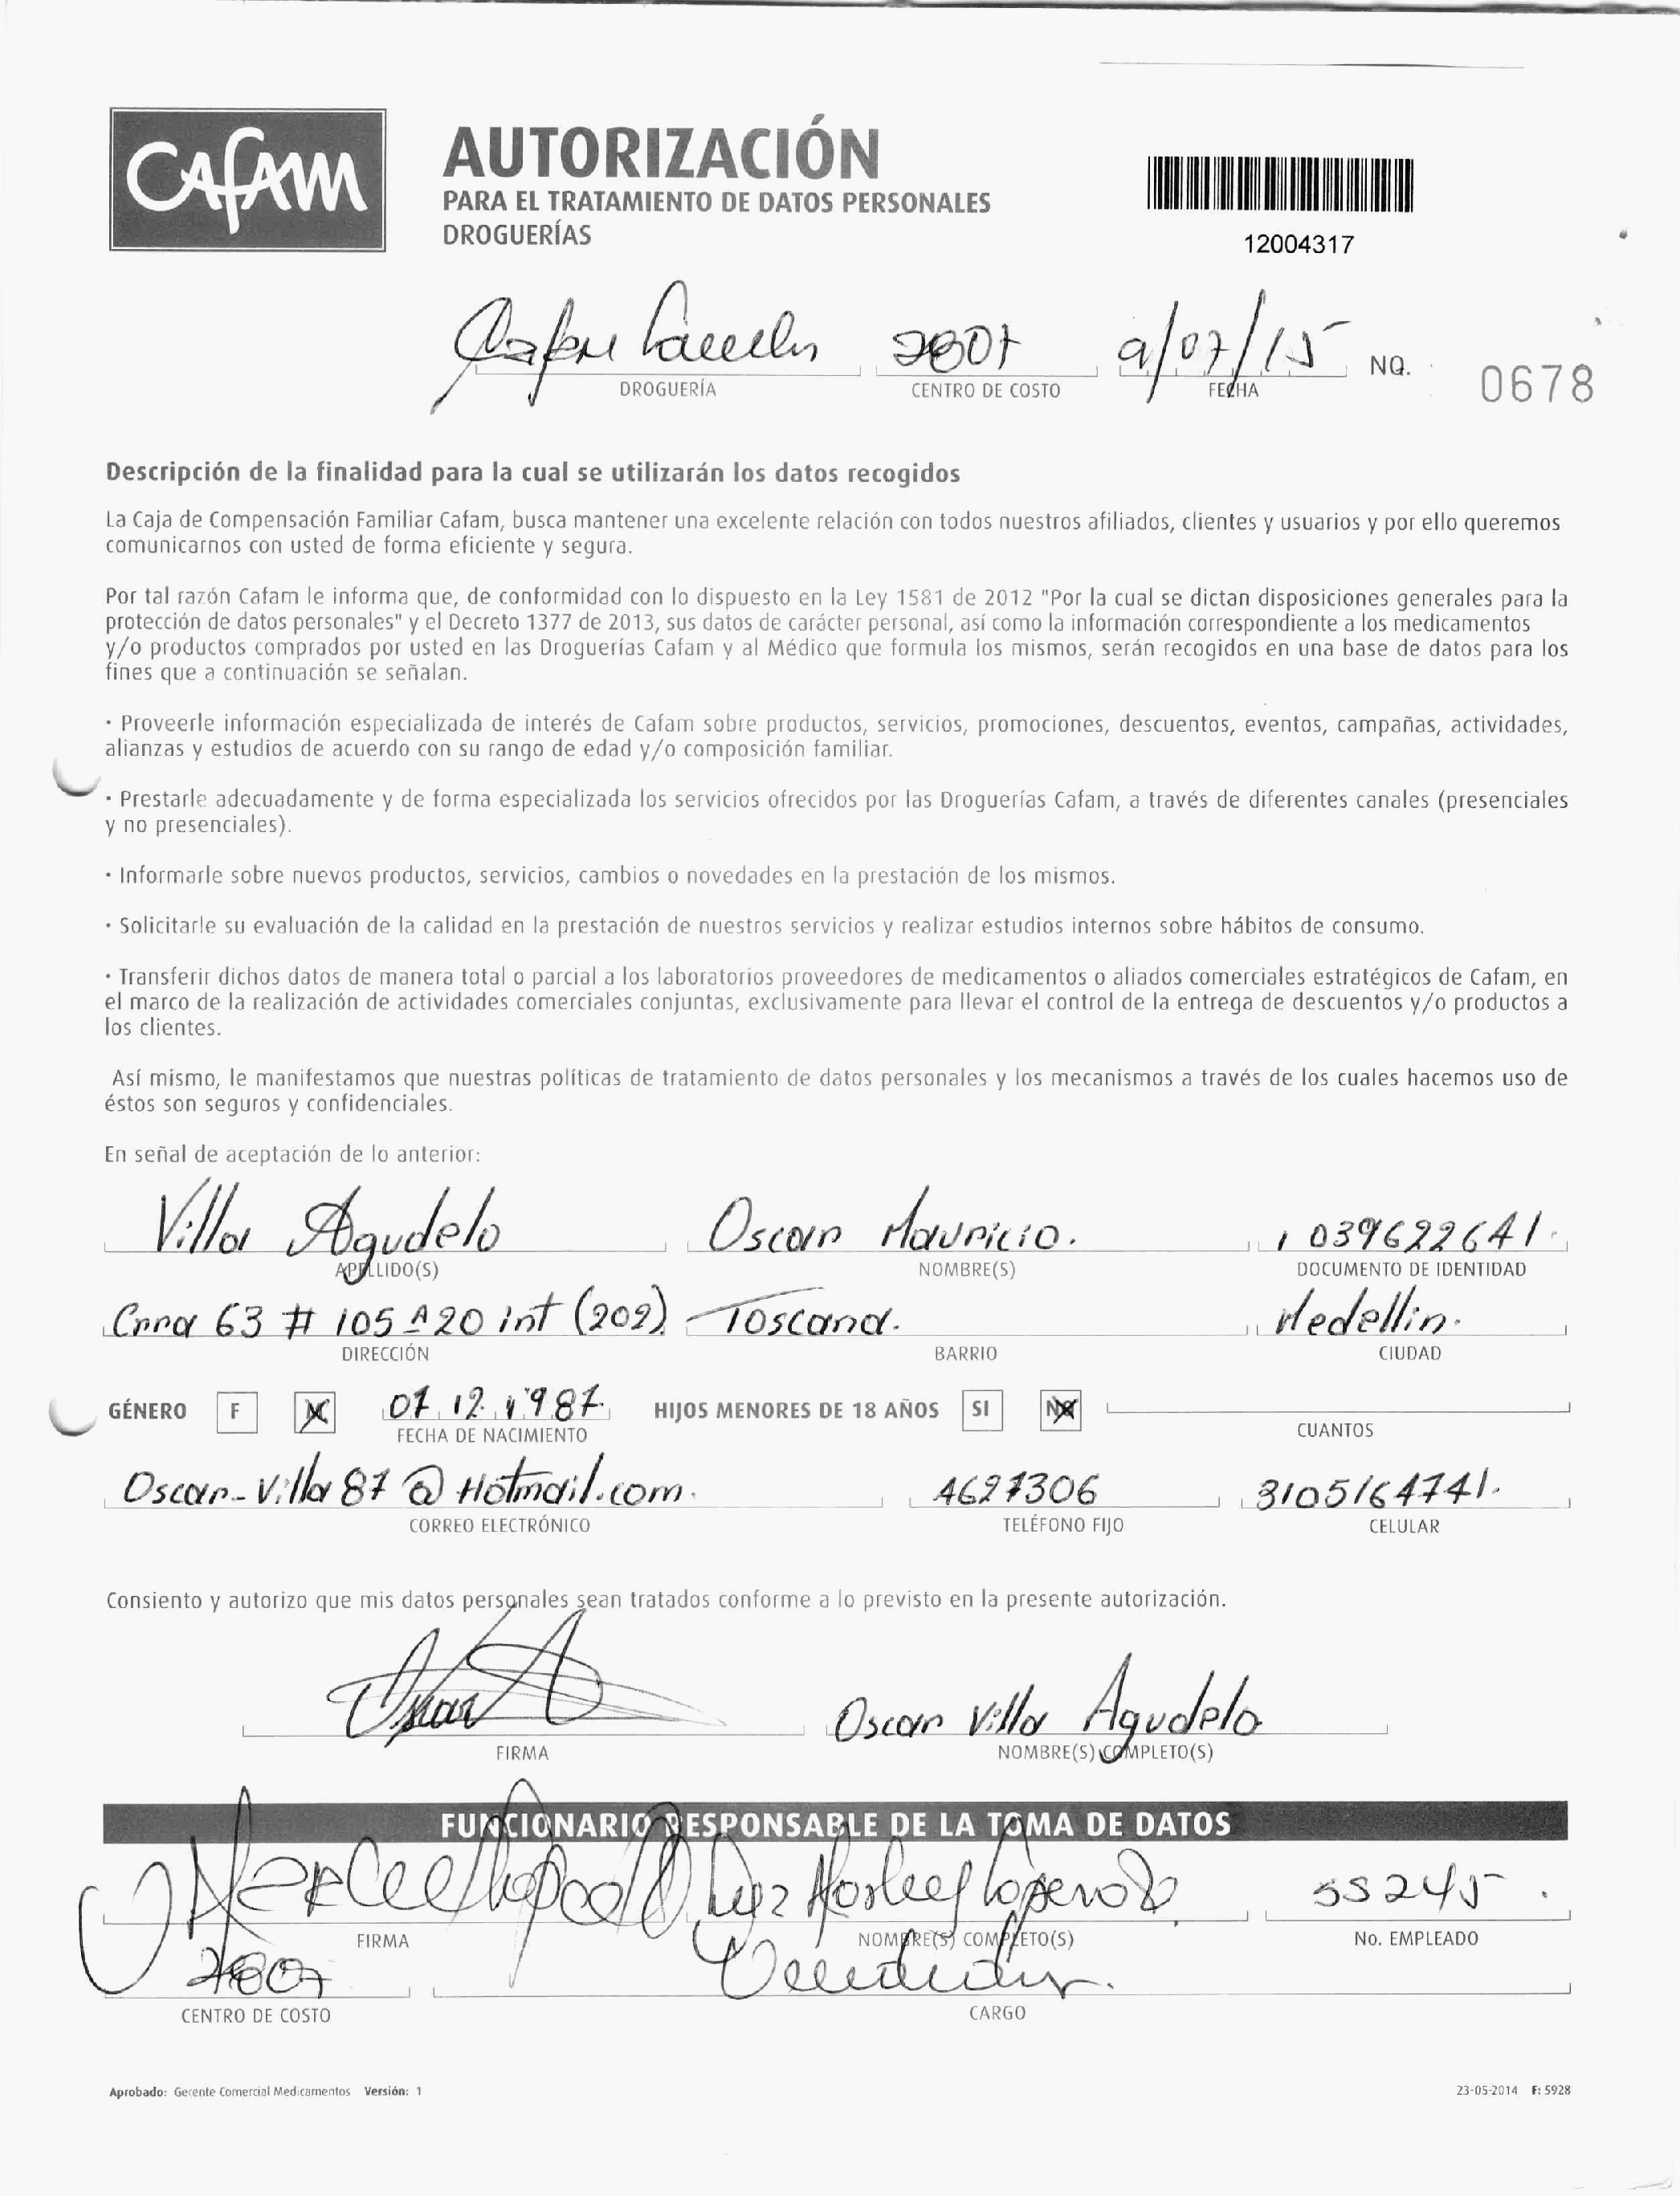 CAFAM
AUTORIZACIÓN
PARA EL TRATAMIENTO DE DATOS PERSONALES
DROGUERÍAS
12004317
9/07/15 NO. 0678
DROGUERÍA CENTRO DE COSTO FECHA
Descripción de la finalidad para la cual se utilizarán los datos recogidos
La Caja de Compensación Familiar Cafam, busca mantener una excelente relación con todos nuestros afiliados, clientes y usuarios y por ello queremos
comunicarnos con usted de forma eficiente y segura.
Por tal razón Cafam le informa que, de conformidad con lo dispuesto en la Ley 1581 de 2012 "Por la cual se dictan disposiciones generales para la
protección de datos personales" y el Decreto 1377 de 2013, sus datos de carácter personal, así como la información correspondiente a los medicamentos
y/o productos comprados por usted en las Droguerías Cafam y al Médico que formula los mismos, serán recogidos en una base de datos para los
fines que a continuación se señalan.
· Proveerle información especializada de interés de Cafam sobre productos, servicios, promociones, descuentos, eventos, campañas, actividades,
alianzas y estudios de acuerdo con su rango de edad y/o composición familiar.
· Prestarle adecuadamente y de forma especializada los servicios ofrecidos por las Droguerías Cafam, a través de diferentes canales (presenciales
y no presenciales).
· Informarle sobre nuevos productos, servicios, cambios o novedades en la prestación de los mismos.
· Solicitarle su evaluación de la calidad en la prestación de nuestros servicios y realizar estudios internos sobre hábitos de consumo.
· Transferir dichos datos de manera total o parcial a los laboratorios proveedores de medicamentos o aliados comerciales estratégicos de Cafam, en
el marco de la realización de actividades comerciales conjuntas, exclusivamente para llevar el control de la entrega de descuentos y/o productos a
los clientes.
Así mismo, le manifestamos que nuestras políticas de tratamiento de datos personales y los mecanismos a través de los cuales hacemos uso de
éstos son seguros y confidenciales.
En señal de aceptación de lo anterior:
Villa Agudelo Oscar Mauricio. 1039622641.
APELLIDO(S) NOMBRE(S) DOCUMENTO DE IDENTIDAD
Crra 63 # 105 A 20 int (202) Toscana. Medellin.
DIRECCIÓN BARRIO CIUDAD
GÉNERO F M 07 12 1987 HIJOS MENORES DE 18 AÑOS SI NO
FECHA DE NACIMIENTO CUANTOS
Oscar-Villa87@Hotmail.com. 4627306 3105164741.
CORREO ELECTRÓNICO TELÉFONO FIJO CELULAR
Consiento y autorizo que mis datos personales sean tratados conforme a lo previsto en la presente autorización.
Oscar Villa Agudelo
FIRMA NOMBRE(S) COMPLETO(S)
FUNCIONARIO RESPONSABLE DE LA TOMA DE DATOS
55245.
FIRMA NOMBRE(S) COMPLETO(S) No. EMPLEADO
CENTRO DE COSTO CARGO
Aprobado: Gerente Comercial Medicamentos Versión: 1 23-05-2014 F: 5928